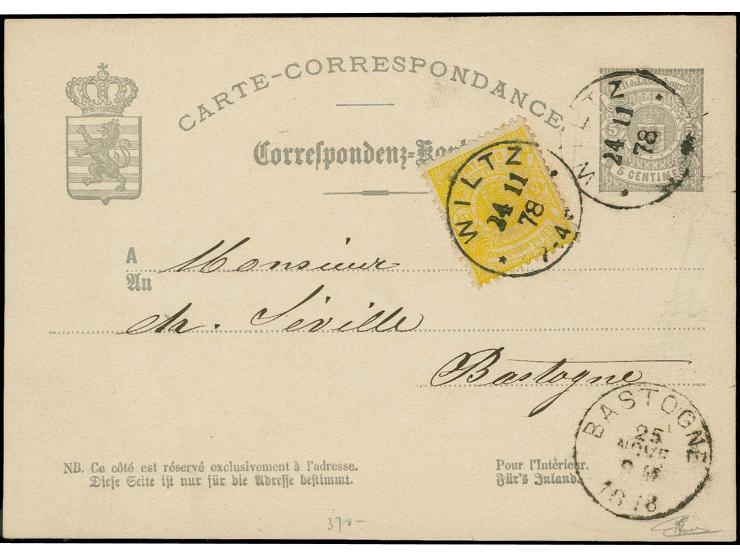 CARTE-CORRESPONDANCE
Correspondenz-Karte
5 CENTIMES
WILTZ
24 11
78
WILTZ
24 11
78
A Monsieur
An
Ch. Séville
Bastogne
BASTOGNE
25
NOVE
1878
NB. Ce côté est réservé exclusivement à l'adresse.
Diese Seite ist nur für die Adresse bestimmt.
Pour l'Intérieur.
Für's Inland.
370-